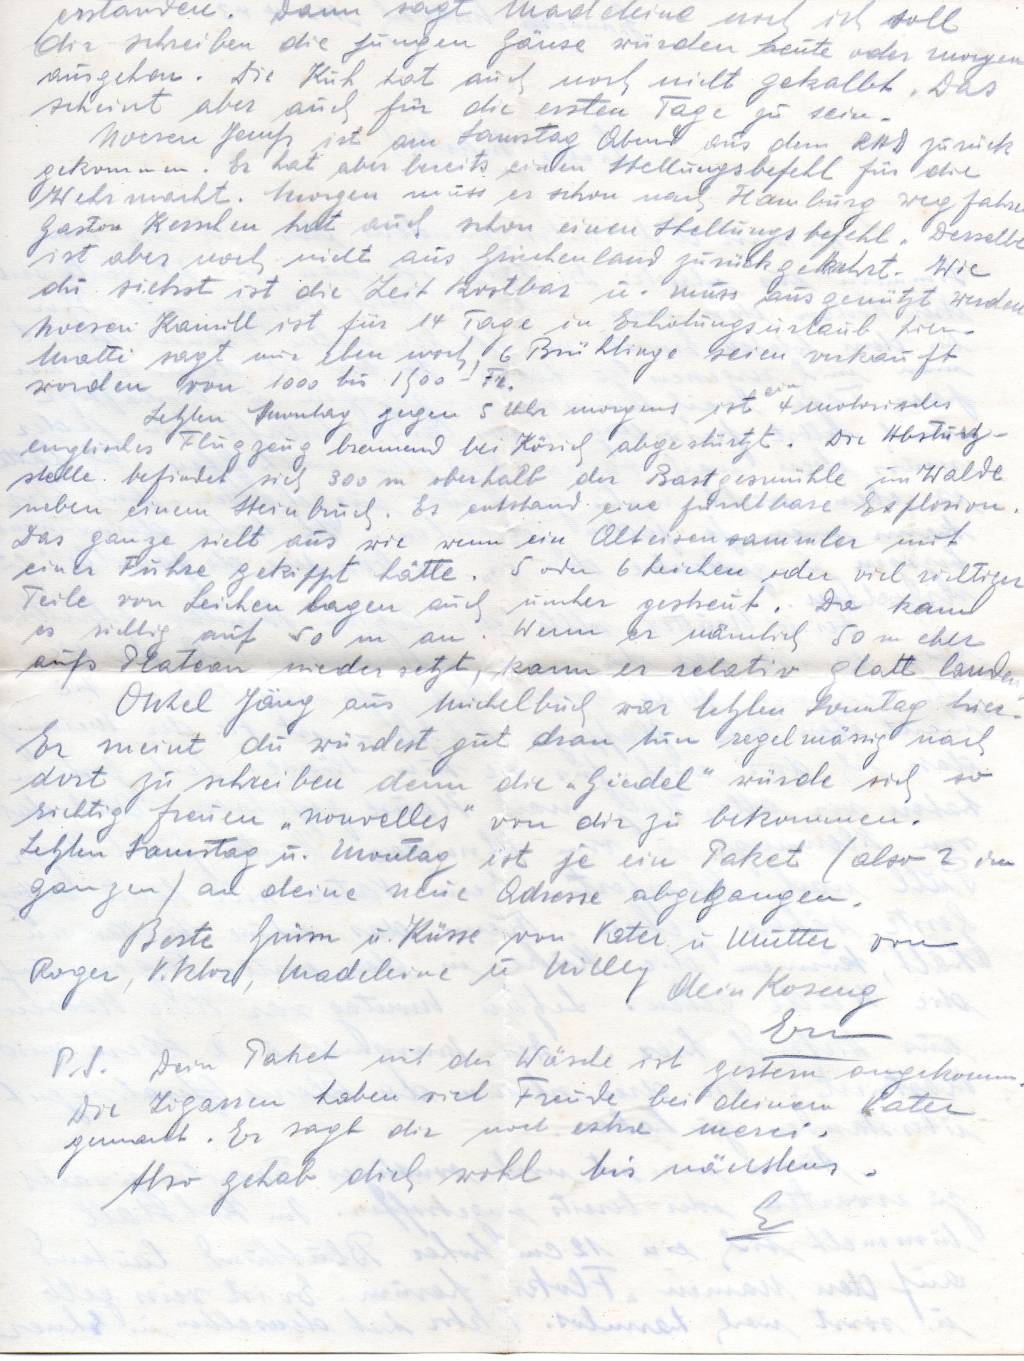 erstanden. Dann sagt Madeleine noch ich soll
dir schreiben die jungen Gänse würden heute oder morgen
ausgehen. Die Kuh hat auch noch nicht gekalbt. Das
scheint aber auch für die ersten Tage zu sein.
Noesen ist am Samstag Abend aus dem RAD zurück
gekommen. Er hat aber bereits einen Stellungsbefehl für die
Wehrmacht. Morgen muss er schon nach Hamburg wegfahren
Gaston Kerschen hat auch schon einen Stellungsbefehl. Derselbe
ist aber noch nicht aus Griechenland zurückgekehrt. Wie
du siehst ist die Zeit kostbar u. muss ausgenützt werden
Noesen Kamill ist für 14 Tage in Erholungsurlaub hier.
Matti sagt mir eben noch, 6 Brühlinge seien verkauft
worden von 1000 bis 1500 - Fr.
Letzten Montag gegen 5 Uhr morgens ist ein 4 motorisches
englisches Flugzeug brennend bei Körich abgestürtzt. Die Absturz-
stelle befindet sich 300 m oberhalb der Bastgesmühle im Walde
neben einem Steinbruch. Es entstand eine furchtbare Explosion.
Das ganze sieht aus wie wenn ein Alteisensammler mit
einer Fuhre gekippt hätte. 5 oder 6 Leichen oder viel richtiger
Teile von Leichen lagen auch umher gestreut. Da kam
es richtig auf 50 m an. Wenn er nämlich 50 m eher
aufs Plateau niedersetzt, kann er relativ glatt landen.
Onkel Jäng aus Michelbuch war letzten Sonntag hier.
Er meint du würdest gut dran tun regelmässig nach
dort zu schreiben denn die „Giedel“ würde sich so
richtig freuen „nouvelles“ von dir zu bekommen.
Letzten Samstag u. Montag ist je ein Paket (also 2 im
ganzen) an deine neue Adresse abgegangen.
Beste Grüsse u. Küsse von Vater u Mutter von
Roger, Viktor, Madeleine u Milly
dein Koseng
Ern
P.S. Dein Paket mit der Wäsche ist gestern angekomm.
Die Zigarren haben viel Freude bei deinem Vater
gemacht. Er sagt dir noch extra merci.
Also gehab dich wohl bis nächstens.
E